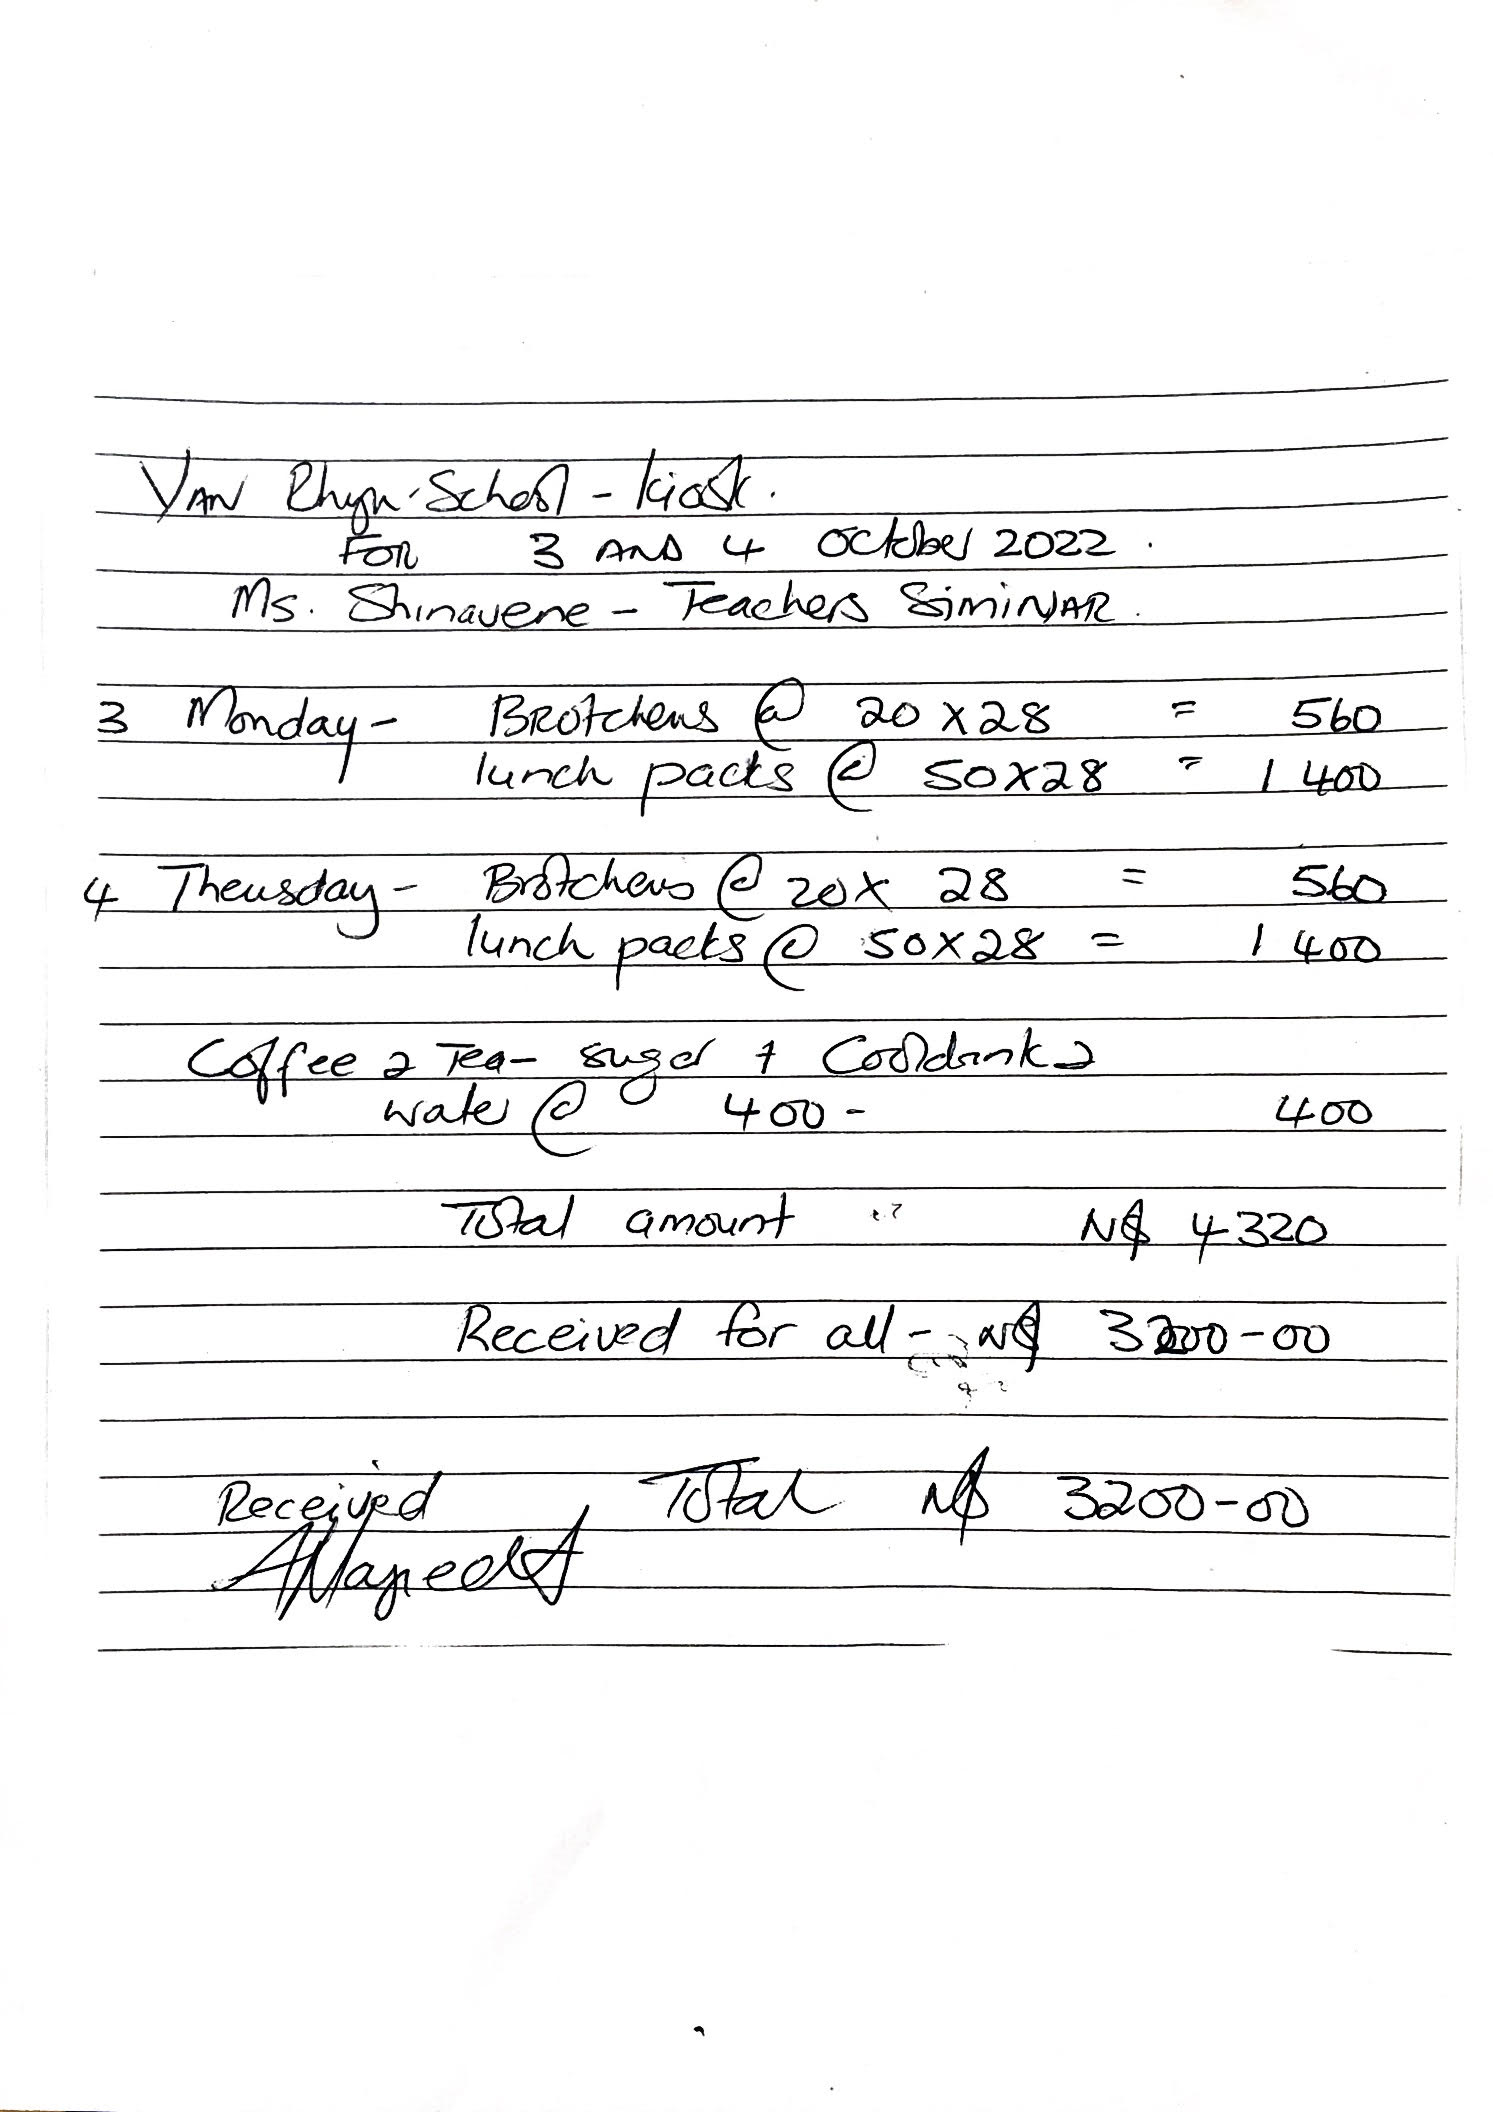 VAN Rhyn-School - Kiosk.
FOR 3 AND 4 October 2022.
Ms. Shinavene - Teachers SiMiNAR.
3 Monday - BRotchens @ 20 x 28 = 560
lunch packs @ 50x28 = 1 400
4 Theusday - Brotchens @ 20x 28 = 560
lunch packs @ 50x28 = 1 400
Coffee & Tea - suger + Cooldrink &
water @ 400 - 400
Total amount N$ 4320
Received for all - N$ 3200-00
Received Total N$ 3200-00